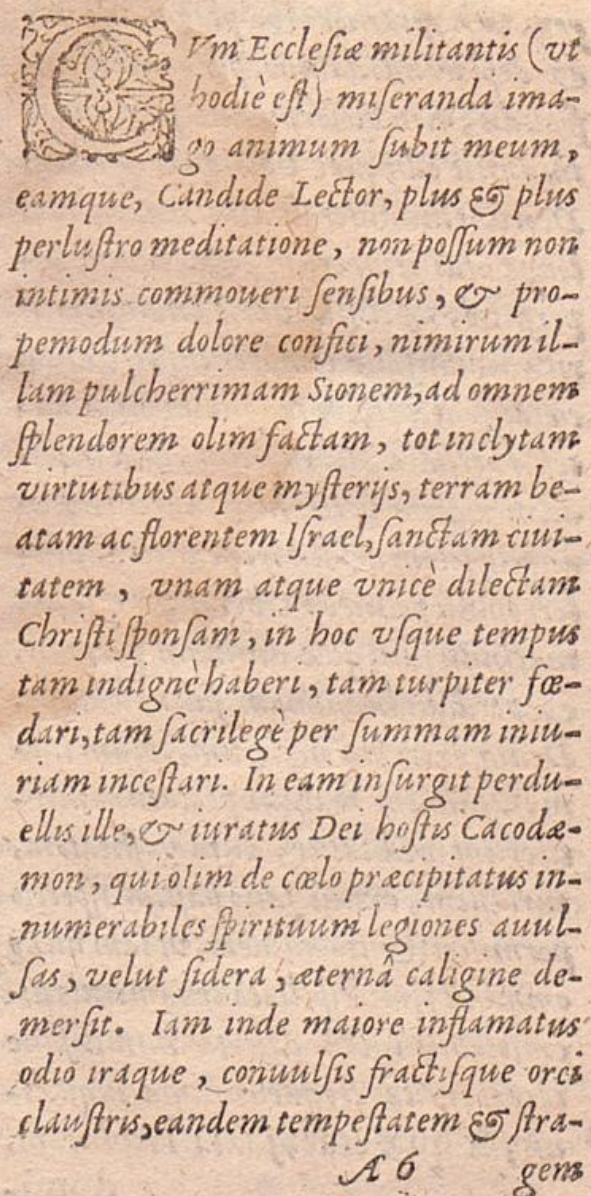 CVm Ecclesiæ militantis (vt
hodiè est) miseranda ima-
go animum subit meum,
eamque, Candide Lector, plus & plus
perlustro meditatione, non possum non
intimis commoueri sensibus, & pro-
pemodum dolore confici, nimirum il-
lam pulcherrimam Sionem, ad omnem
splendorem olim factam, tot inclytam
virtutibus atque mysterijs, terram be-
atam ac florentem Israel, sanctam ciui-
tatem, vnam atque vnicè dilectam
Christi sponsam, in hoc vsque tempus
tam indignè haberi, tam turpiter fœ-
dari, tam sacrilegè per summam iniu-
riam incestari. In eam insurgit perdu-
ellis ille, & iuratus Dei hostis Cacodæ-
mon, qui olim de cœlo præcipitatus in-
numerabiles spirituum legiones auul-
sas, velut sidera, æternâ caligine de-
mersit. Iam inde maiore inflamatus
odio iraque, conuulsis fractisque orci
claustris, eandem tempestatem & stra-
A 6 gem